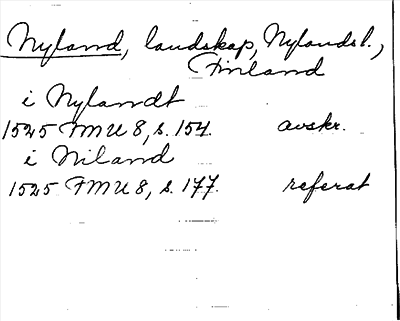 Nyland, landskap, Nylands l.,
Finland
i Nylandt
1525 FMU 8, s. 154. avskr.
i Niland
1525 FMU 8, s. 177. referat